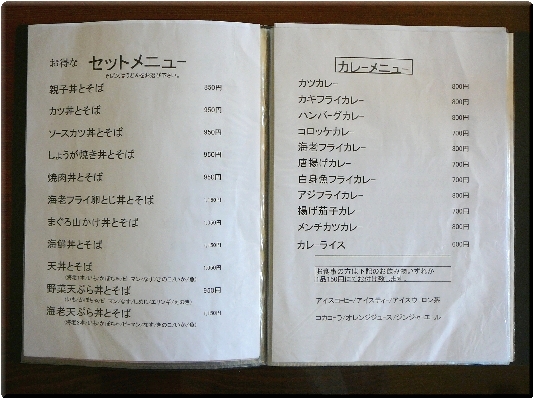 お得な セットメニュー
親子丼とそば 850円
カツ丼とそば 950円
ソースカツ丼とそば 950円
しょうが焼き丼とそば 950円
焼肉丼とそば 950円
海老フライ卵とじ丼とそば
まぐろ山かけ丼とそば
海鮮丼とそば
天丼とそば
野菜天ぷら丼とそば 950円
海老天ぷら丼とそば
カレーメニュー
カツカレー 800円
カキフライカレー 800円
ハンバーグカレー 800円
コロッケカレー 700円
海老フライカレー 800円
唐揚げカレー 700円
白身魚フライカレー 700円
アジフライカレー 800円
揚げ茄子カレー 700円
メンチカツカレー 800円
カレーライス 600円
お食事の方は下記のお飲み物いずれか
1品150円にてお付け致します。
アイスコーヒー/アイスティー/アイスウーロン茶
コカコーラ/オレンジジュース/ジンジャーエール